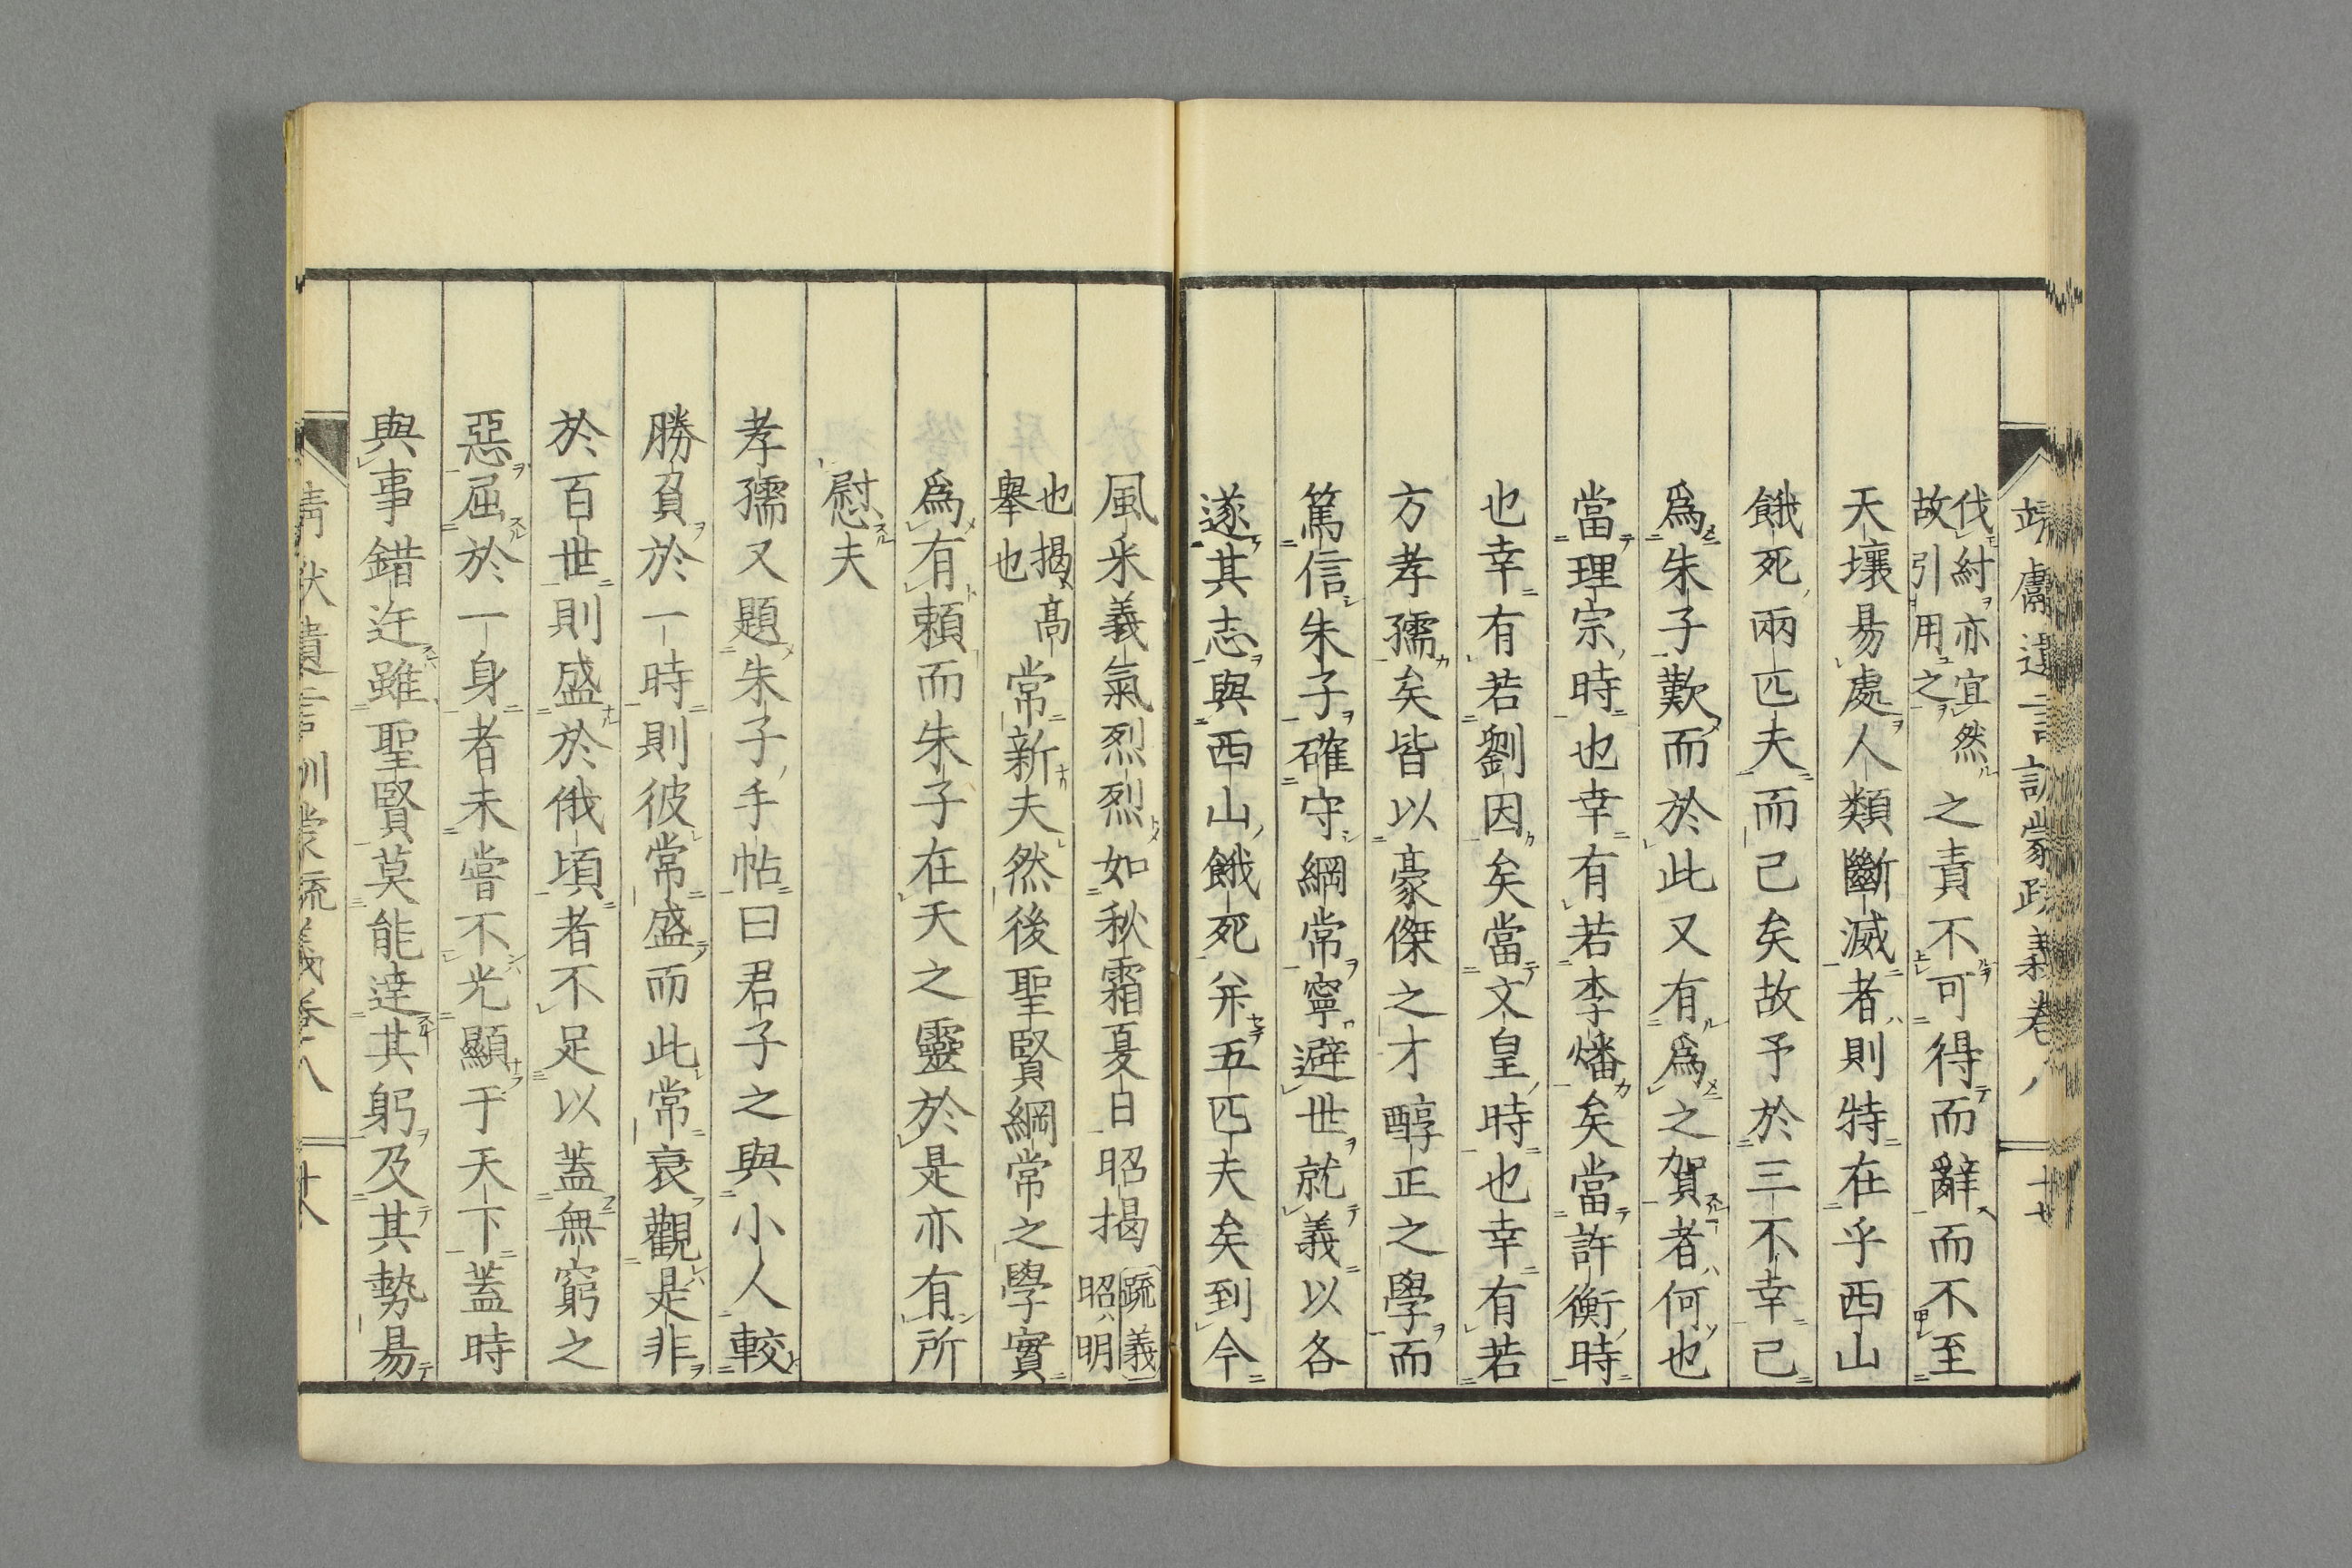 靖獻遺言訓蒙疏義卷八
十七
伐紂亦宜然
故引用之
之責不可得而辭而不至
天壤易處人類斷滅者則特在乎西山
餓死兩匹夫而已矣故予於三不幸已
爲朱子歎而於此又有爲之賀者何也
當理宗時也幸有若李燔矣當許衡時
也幸有若劉因矣當文皇時也幸有若
方孝孺矣皆以豪傑之才醇正之學而
篤信朱子確守綱常寧避世就義以各
遂其志與西山餓死幷五匹夫矣到今
風釆義氣烈烈如秋霜夏日昭揭
疏義
昭明
也揭高
舉也
常新夫然後聖賢綱常之學實
爲有賴而朱子在天之靈於是亦有所
慰夫
孝孺又題朱子手帖曰君子之與小人較
勝負於一時則彼常盛而此常衰觀是非
於百世則盛於俄頃者不足以蓋無窮之
惡屈於一身者未嘗不光顯于天下蓋時
與事錯迕雖聖賢莫能達其躬及其勢易
靖獻遺言訓蒙疏義卷八